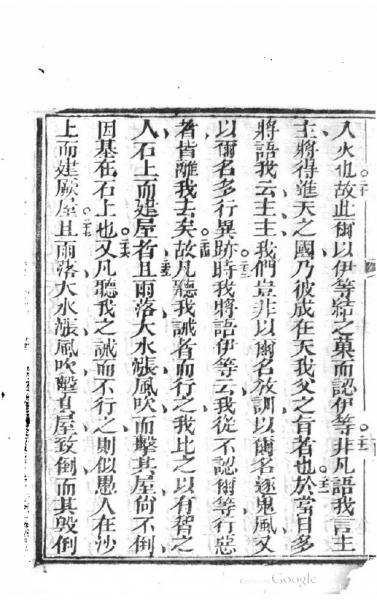 入火也故此爾以伊等結之菓而認伊等○二十一非凡語我言主
主將得進天之國乃彼成在天我父之旨者也○二十二於當日多
將語我云主主我們豈非以爾名放訓以爾名逐鬼風又
以爾名多行異跡○二十三時我將語伊等云我從不認爾等行惡
者皆離我去矣○二十四故凡聽我誡者而行之我比之以有智之
人石上而建屋者○二十五且雨落大水漲風吹而擊其屋尚不倒
因基在石上也○二十六又凡聽我之誡而不行之則似愚人在沙
上而建厥屋○二十七且雨落大水漲風吹擊其屋致倒而其毀倒
Google